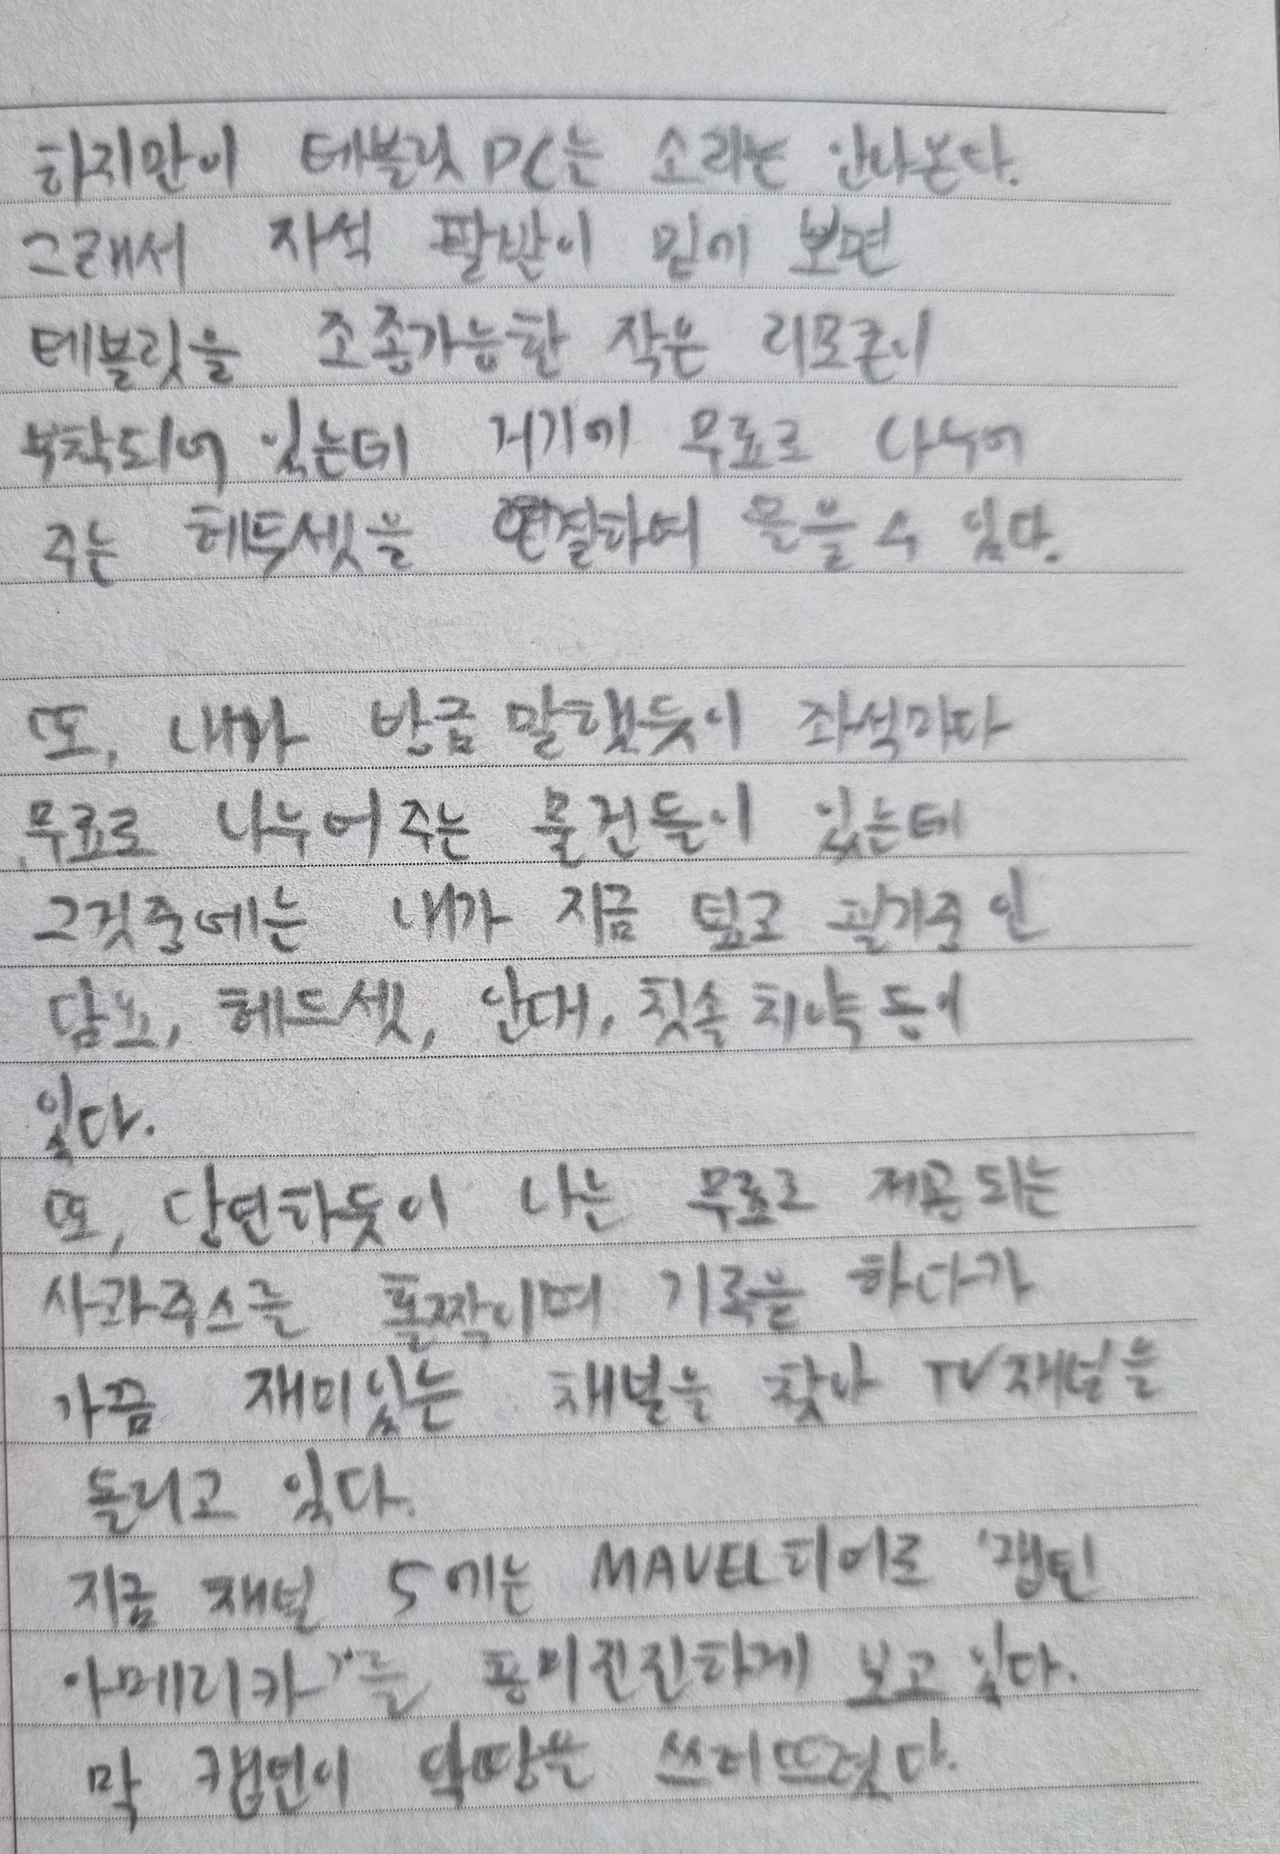 하지만이 테블릿 PC는 소리는 안나온다.
그래서 자석 팔받이 밑에 보면
테블릿을 조종가능한 작은 리모콘이
부착되어 있는데 거기에 무료로 나누어
주는 헤드셋을 연결하여 들을 수 있다.
또, 내가 방금 말했듯이 좌석마다
무료로 나누어 주는 물건들이 있는데
그것중에는 내가 지금 덮고 필기중 인
담뇨, 헤드셋, 안대, 칫솔 치약 등이
있다.
또, 당연하듯이 나는 무료로 제공되는
사과주스를 홀짝이며 기록을 하다가
가끔 재미있는 채널을 찾아 TV채널을
돌리고 있다.
지금 채널 5에는 MAVEL 히어로 '캡틴
아메리카'를 흥미진진하게 보고 있다.
막 캡틴이 악당을 쓰러뜨렸다.